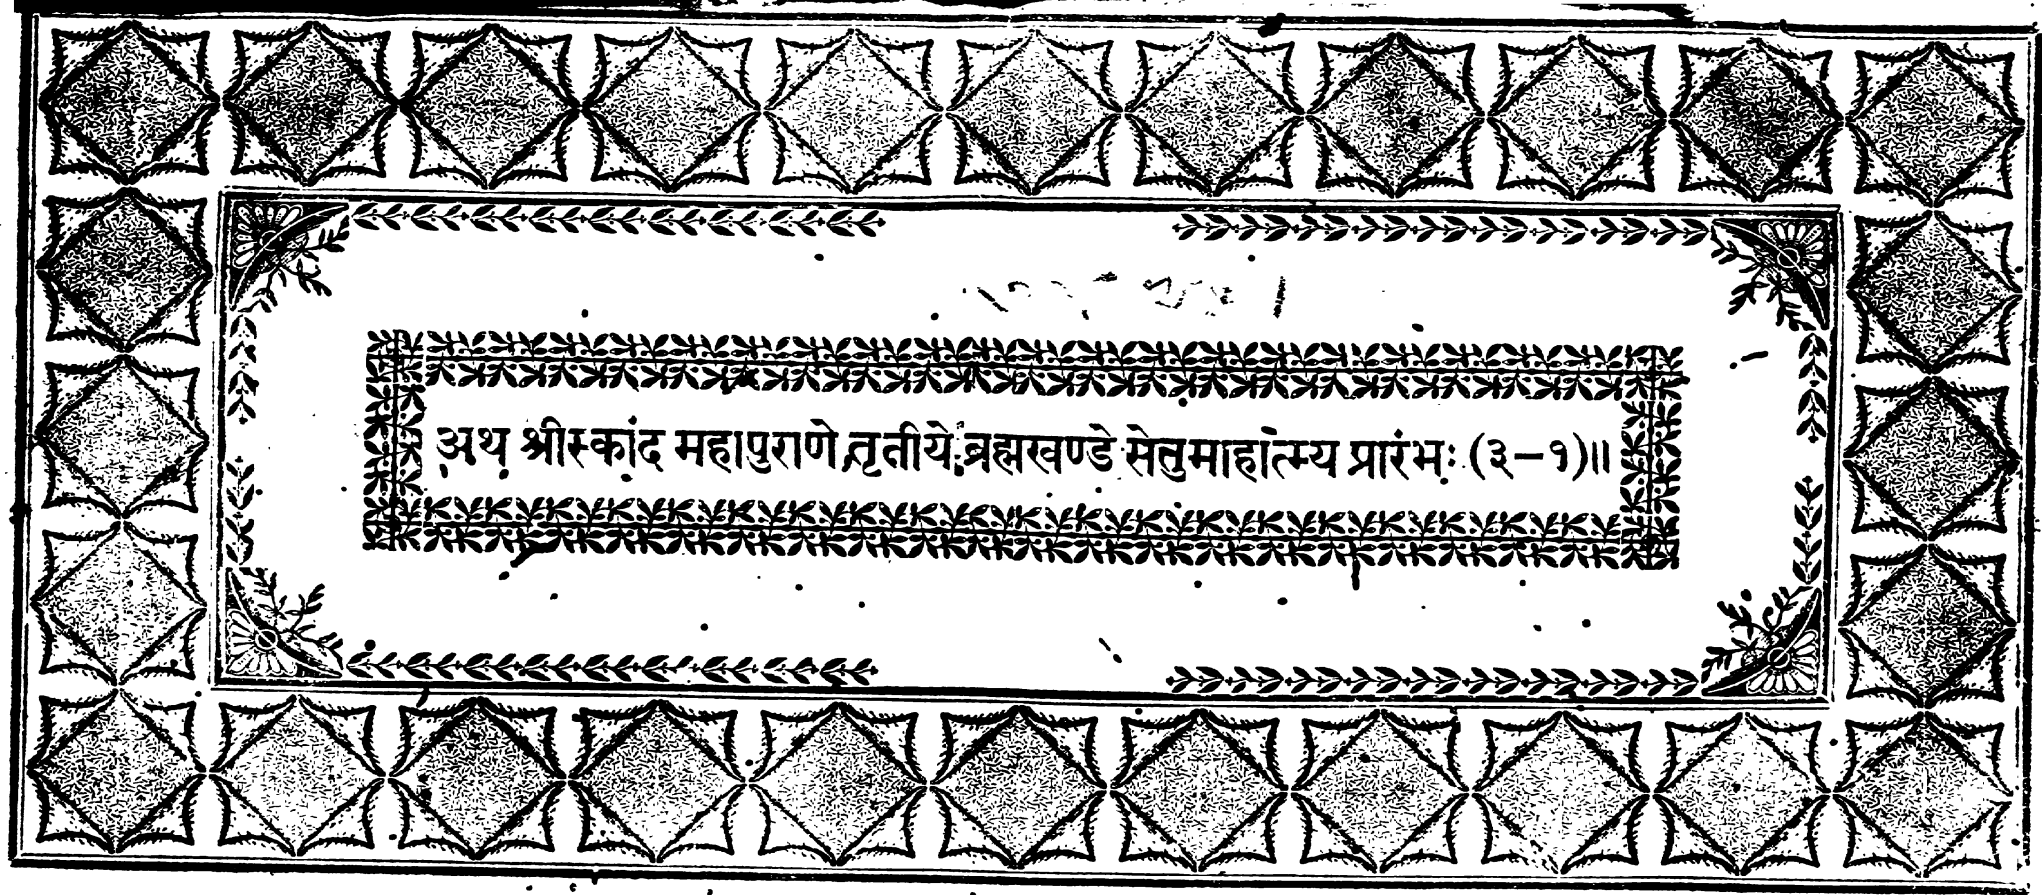 अथ श्रीस्कांद महापुराणे तृतीये ब्रह्मखण्डे सेतुमाहात्म्य प्रारंभः (३-१)॥